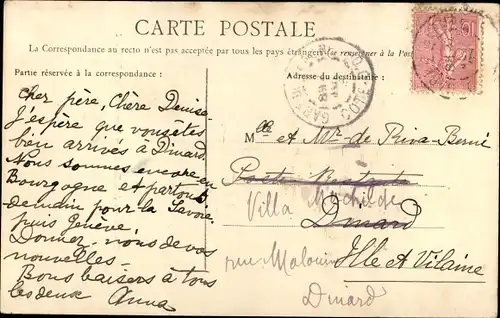 CARTE POSTALE
La Correspondance au recto n'est pas acceptée par tous les pays étrangers (se renseigner à la Poste
Partie réservée à la correspondance :
Adresse du destinataire :
Cher père, Chère Denise
J'espère que vous êtes
bien arrivés à Dinard.
Nous sommes encore en
Bourgogne et partons
demain pour la Savoie
puis Genève.
Donnez-nous de vos
nouvelles-
Bons baisers à tous
les deux Anna
Mlle et Mr de Riva-Berni
Poste Restante
Villa Mathilde
Dinard
rue Malouine
Ille et Vilaine
Dinard